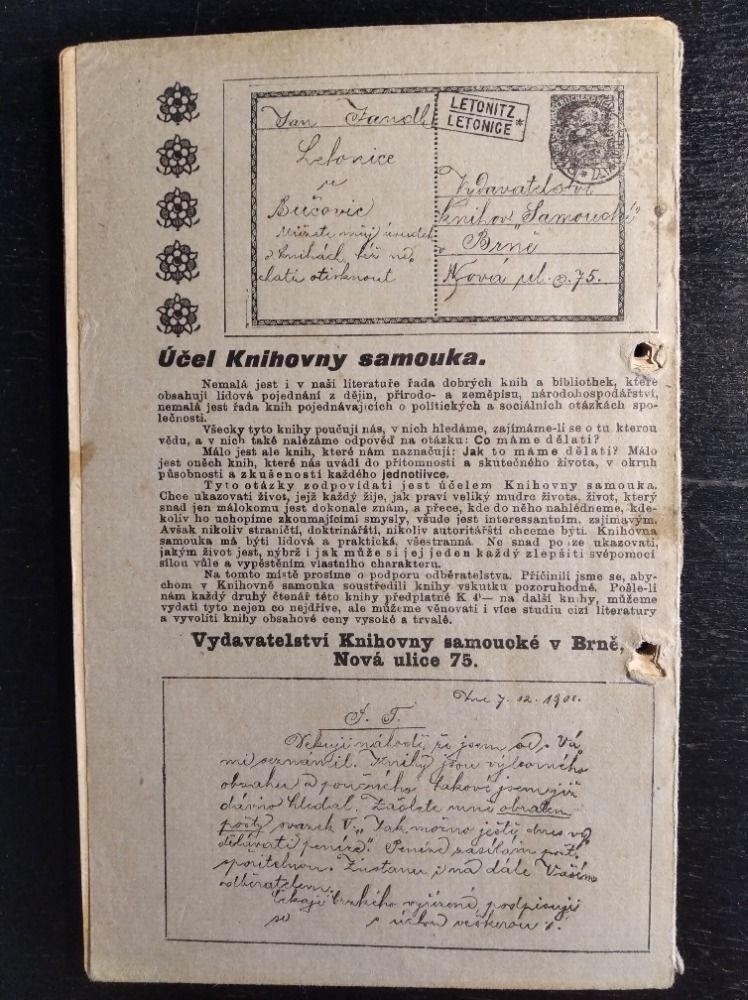 Jan Jandl
LETONITZ
LETONICE
*
Letonice
Bučovic
Můžete můj úsudek
o knihách též na
otisknout
Vydavatelství
knihov „Samoucké“
v Brně
Nová ul. č. 75.
Účel Knihovny samouka.
Nemalá jest i v naší literatuře řada dobrých knih a bibliothek, které
obsahují lidová pojednání z dějin, přírodo- a zeměpisu, národohospodářství,
nemalá jest řada knih pojednávajících o politických a sociálních otázkách spo-
lečnosti.
Všecky tyto knihy poučují nás, v nich hledáme, zajímáme-li se o tu kterou
vědu, a v nich také nalézáme odpověď na otázku: Co máme dělati?
Málo jest ale knih, které nám naznačují: Jak to máme dělati? Málo
jest oněch knih, které nás uvádí do přítomnosti a skutečného života, v okruh
působnosti a zkušeností každého jednotlivce.
Tyto otázky zodpovídati jest účelem Knihovny samouka.
Chce ukazovati život, jejž každý žije, jak praví veliký mudrc života, život, který
snad jen málokomu jest dokonale znám, a přece, kde do něho nahlédneme, kde-
koliv ho uchopíme zkoumajícími smysly, všude jest interessantním, zajímavým.
Avšak nikoliv straničtí, doktrinářští, nikoliv autoritářští chceme býti. Knihovna
samouka má býti lidová a praktická, všestranná. Ne snad pouze ukazovati,
jakým život jest, nýbrž i jak může si jej jeden každý zlepšiti svépomocí
silou vůle a vypěstěním vlastního charakteru.
Na tomto místě prosíme o podporu odběratelstva. Přičinili jsme se, aby-
chom v Knihovně samouka soustředili knihy vskutku pozoruhodné. Pošle-li
nám každý druhý čtenář této knihy předplatné K 4·— na další knihy, můžeme
vydati tyto nejen co nejdříve, ale můžeme věnovati i více studiu cizí literatury
a vyvoliti knihy obsahové ceny vysoké a trvalé.
Vydavatelství Knihovny samoucké v Brně,
Nová ulice 75.
Dne 7. 12.
P. T.
Děkuji náhodě, že jsem se s Vá-
mi seznámil. Knihy jsou výborného
obsahu a poučného takové jsem již
dávno hledal. Zašlete mně obratem
pošty svazek V. „Jak možno ještě dnes vy-
dělávati peníze“. Peníze zasílám pošt.
spořitelnou. Zůstanu i na dále Vaším
odběratelem.
Čekaje brzkého vyřízení, podpisuji
se s úctou veškerou